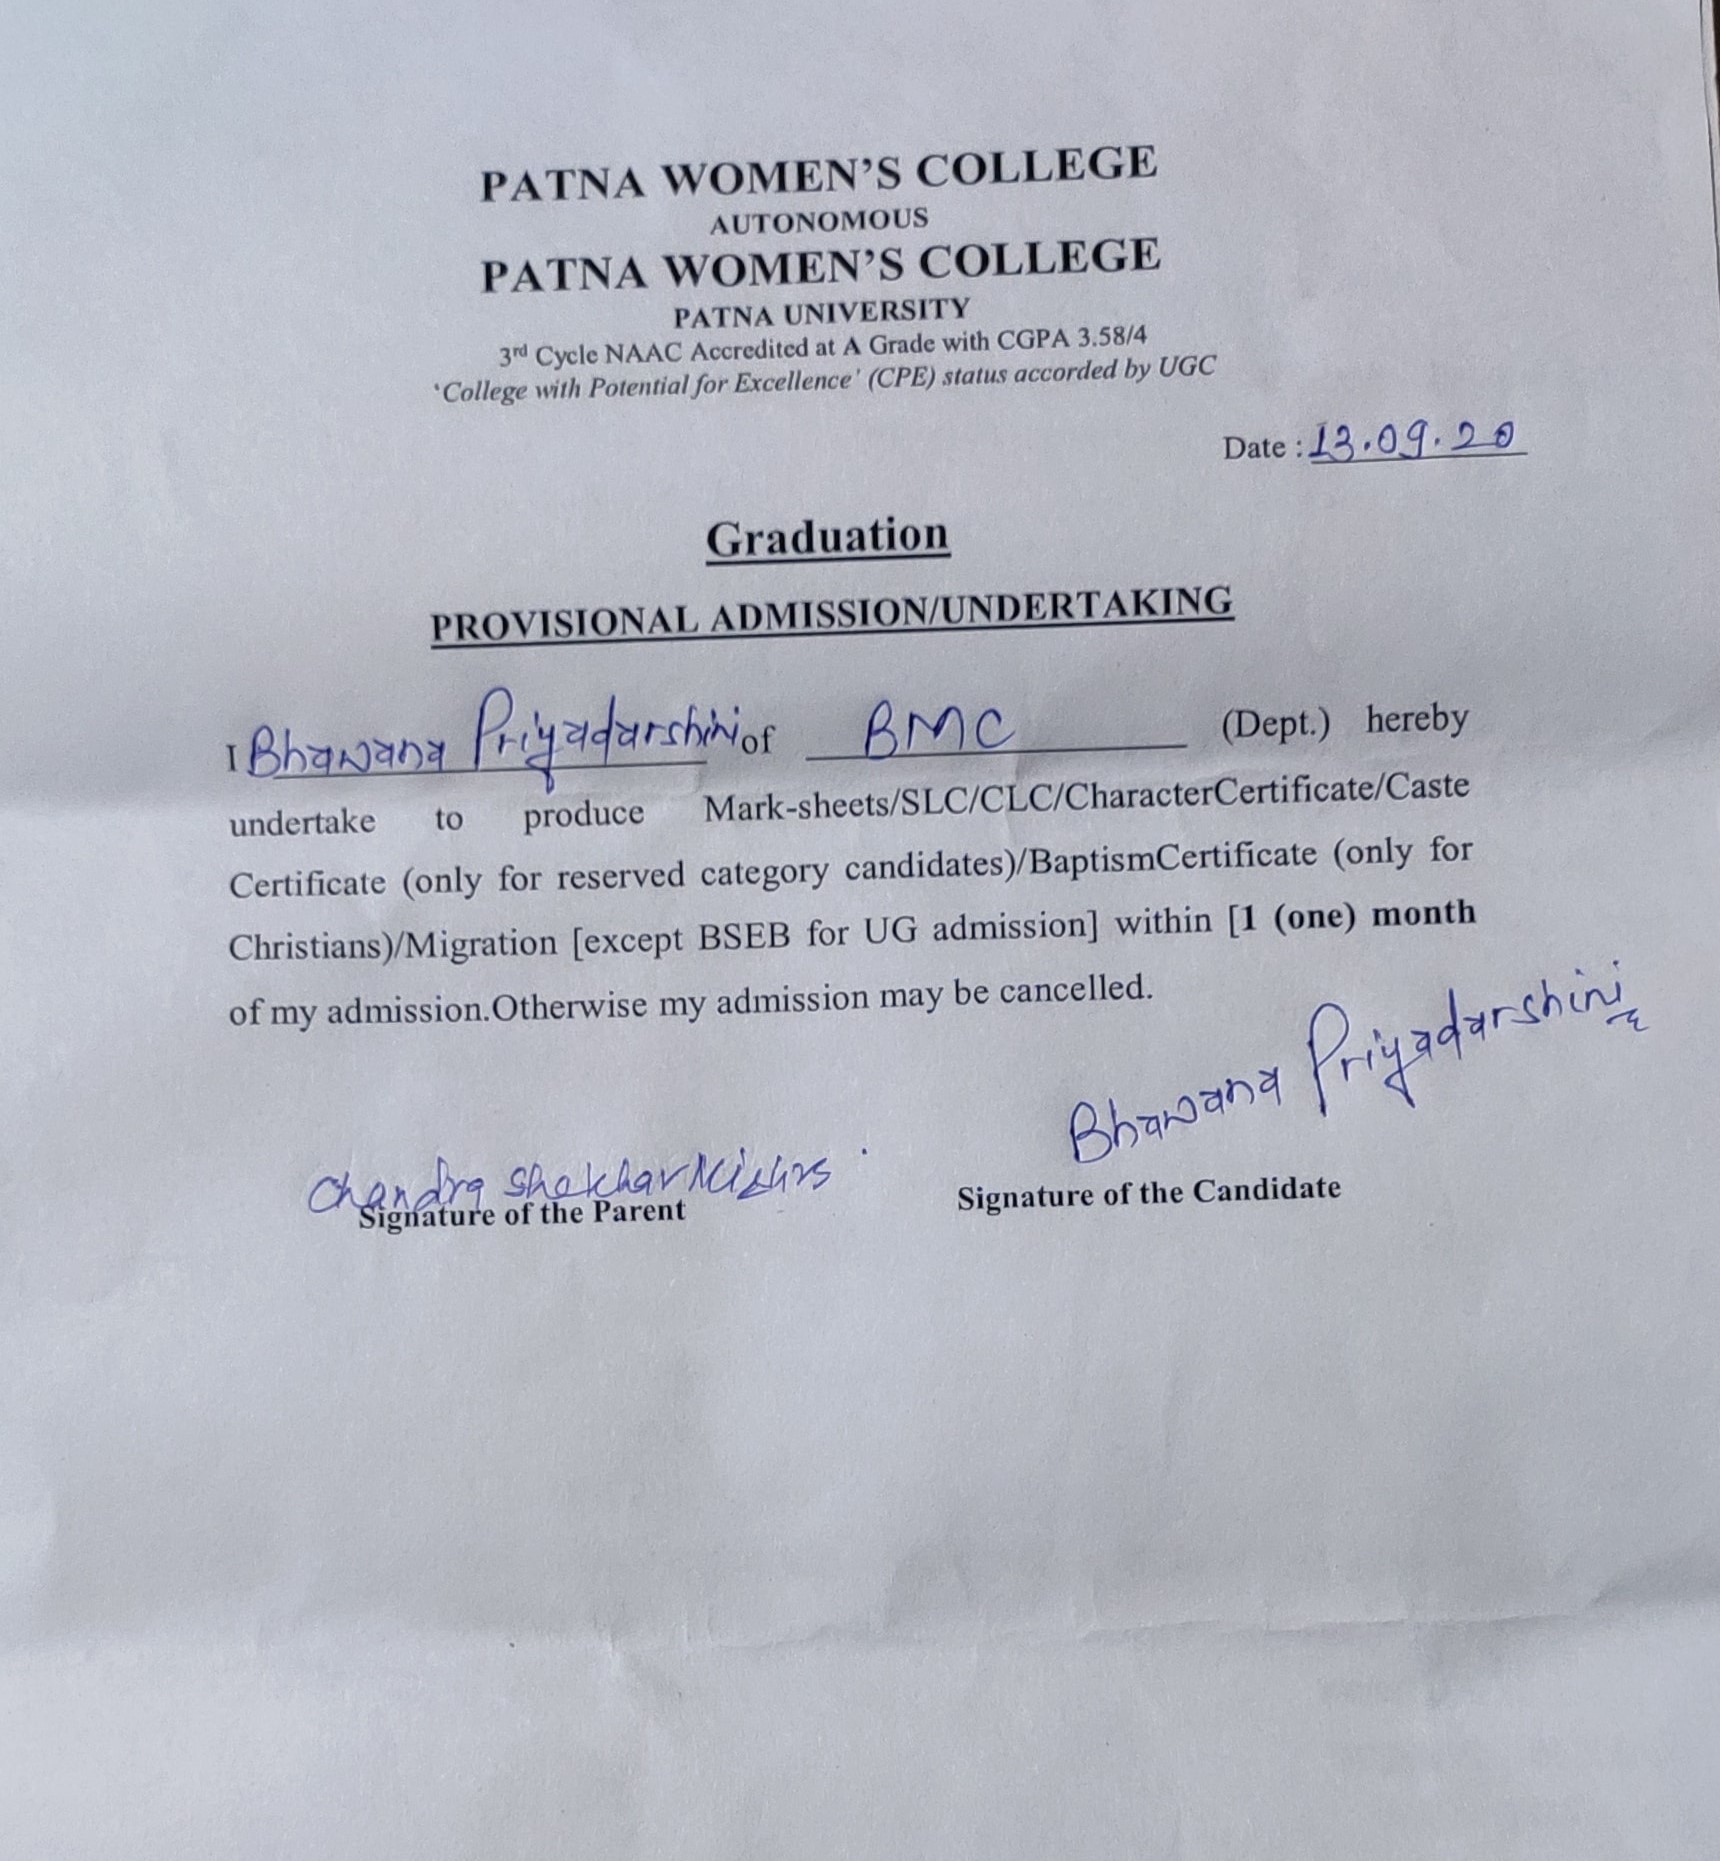 PATNA WOMEN'S COLLEGE
AUTONOMOUS
PATNA WOMEN'S COLLEGE
PATNA UNIVERSITY
3rd Cycle NAAC Accredited at A Grade with CGPA 3.58/4
'College with Potential for Excellence' (CPE) status accorded by UGC
Date : 13.09.20
Graduation
PROVISIONAL ADMISSION/UNDERTAKING
I Bhawana Priyadarshini of BMC (Dept.) hereby
undertake to produce Mark-sheets/SLC/CLC/CharacterCertificate/Caste
Certificate (only for reserved category candidates)/BaptismCertificate (only for
Christians)/Migration [except BSEB for UG admission] within [1 (one) month
of my admission.Otherwise my admission may be cancelled.
Bhawana Priyadarshini
Chandra Shekhar
Signature of the Parent
Signature of the Candidate